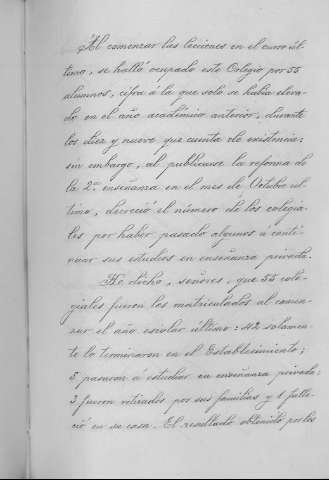 Al comenzar las lecciones en el curso úl-
timo, se halló ocupado este Colegio por 55
alumnos, cifra á la que solo se habia eleva-
do en el año académico anterior, durante
los diez y nueve que cuenta de existencia;
sin embargo, al publicarse la reforma de
la 2.ª enseñanza en el mes de Octubre úl-
timo, decreció el número de los colegia-
les por haber pasado algunos á conti-
nuar sus estudios en enseñanza privada.
He dicho, señores, que 55 cole-
giales fueron los matriculados al comen-
zar el año escolar último: 42 solamen-
te lo terminaron en el Establecimiento;
5 pasaron á estudiar en enseñanza privada;
3 fueron retirados por sus familias y 1 falle-
ció en su casa. El resultado obtenido por los